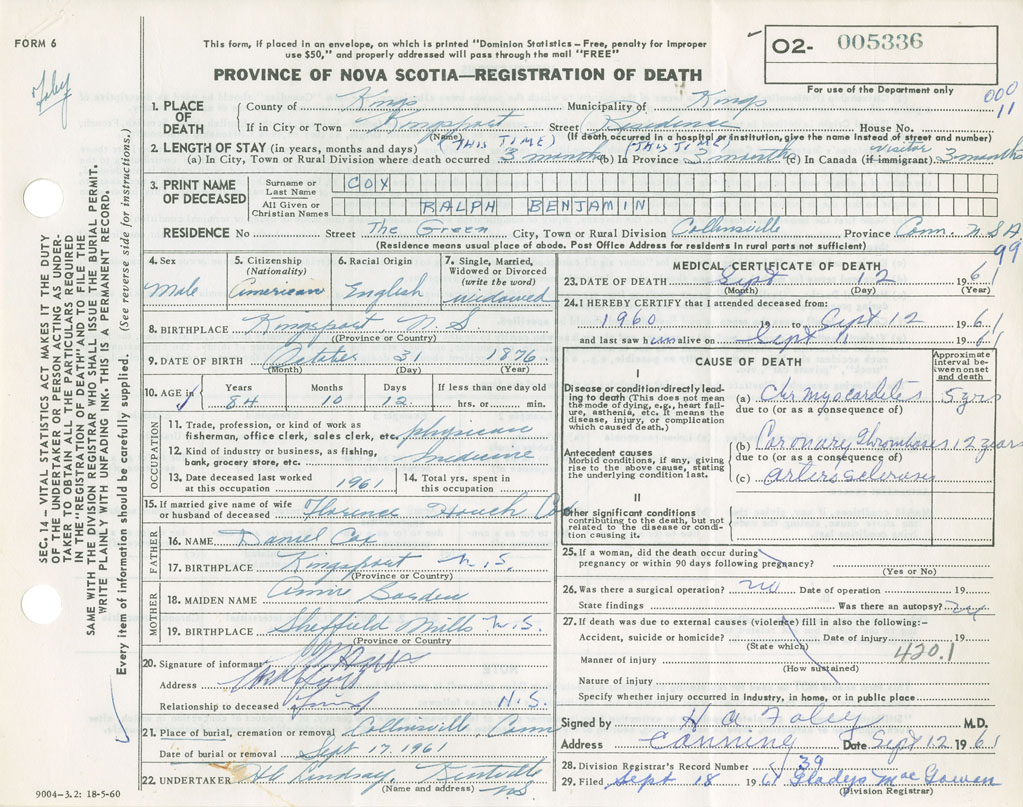 FORM 6
Foley
This form, if placed in an envelope, on which is printed "Dominion Statistics – Free, penalty for improper
use $50," and properly addressed will pass through the mail "FREE"
PROVINCE OF NOVA SCOTIA—REGISTRATION OF DEATH
02- 005336
For use of the Department only
000
11
SEC. 14 – VITAL STATISTICS ACT MAKES IT THE DUTY
OF THE UNDERTAKER OR PERSON ACTING AS UNDER-
TAKER TO OBTAIN ALL THE PARTICULARS REQUIRED
IN THE "REGISTRATION OF DEATH" AND TO FILE THE
SAME WITH THE DIVISION REGISTRAR WHO SHALL ISSUE THE BURIAL PERMIT.
WRITE PLAINLY WITH UNFADING INK. THIS IS A PERMANENT RECORD.
Every item of information should be carefully supplied. (See reverse side for instructions.)
1. PLACE OF DEATH
County of Kings Municipality of Kings
If in City or Town Kingsport Street Residence House No.
(Name) (If death occurred in a hospital or institution, give the name instead of street and number)
2. LENGTH OF STAY (in years, months and days) (THIS TIME) (THIS TIME) Visitor
(a) In City, Town or Rural Division where death occurred 3 months (b) In Province 3 months (c) In Canada (if immigrant) 3 months
3. PRINT NAME OF DECEASED
Surname or Last Name COX
All Given or Christian Names RALPH BENJAMIN
RESIDENCE No Street The Green City, Town or Rural Division Collinsville Province Conn. U S A
(Residence means usual place of abode. Post Office Address for residents in rural parts not sufficient)
99
4. Sex Male
5. Citizenship (Nationality) American
6. Racial Origin English
7. Single, Married, Widowed or Divorced (write the word) widowed
8. BIRTHPLACE Kingsport, N S.
(Province or Country)
9. DATE OF BIRTH October 31 1876
(Month) (Day) (Year)
10. AGE in Years 84 Months 10 Days 12 If less than one day old hrs. or min.
OCCUPATION
11. Trade, profession, or kind of work as fisherman, office clerk, sales clerk, etc. physician
12. Kind of industry or business, as fishing, bank, grocery store, etc. medicine
13. Date deceased last worked at this occupation 1961
14. Total yrs. spent in this occupation
15. If married give name of wife or husband of deceased Florence Hough Cox
FATHER
16. NAME Daniel Cox
17. BIRTHPLACE Kingsport N.S.
(Province or Country)
MOTHER
18. MAIDEN NAME Annie Borden
19. BIRTHPLACE Sheffield Mills N.S.
(Province or Country
20. Signature of informant
Address
Relationship to deceased friend N.S.
21. Place of burial, cremation or removal Collinsville Conn
Date of burial or removal Sept 17, 1961
22. UNDERTAKER Lindsay, Kentville NS
(Name and address)
9004–3.2: 18-5-60
MEDICAL CERTIFICATE OF DEATH
23. DATE OF DEATH Sept 12 1961
(Month) (Day) (Year)
24. I HEREBY CERTIFY that I attended deceased from:
1960 19 to Sept 12 1961
and last saw him alive on Sept 11 1961
CAUSE OF DEATH
Approximate interval between onset and death
I
Disease or condition directly leading to death (This does not mean the mode of dying, e.g., heart failure, asthenia, etc. It means the disease, injury, or complication which caused death.)
(a) Chr myocarditis 5 yrs
due to (or as a consequence of)
Antecedent causes
Morbid conditions, if any, giving rise to the above cause, stating the underlying condition last.
(b) Coronary thrombosis 12 years
due to (or as a consequence of)
(c) arteriosclerosis
II
Other significant conditions
contributing to the death, but not related to the disease or condition causing it.
25. If a woman, did the death occur during
pregnancy or within 90 days following pregnancy?
(Yes or No)
26. Was there a surgical operation? no Date of operation 19
State findings Was there an autopsy? no
27. If death was due to external causes (violence) fill in also the following:–
Accident, suicide or homicide? Date of injury 19
(State which)
Manner of injury 420.1
(How sustained)
Nature of injury
Specify whether injury occurred in industry, in home, or in public place
Signed by H A Foley M.D.
Address Canning Date Sept 12 1961
28. Division Registrar's Record Number 39
29. Filed Sept 18 1961 Gladys Mae Gowan
(Division Registrar)